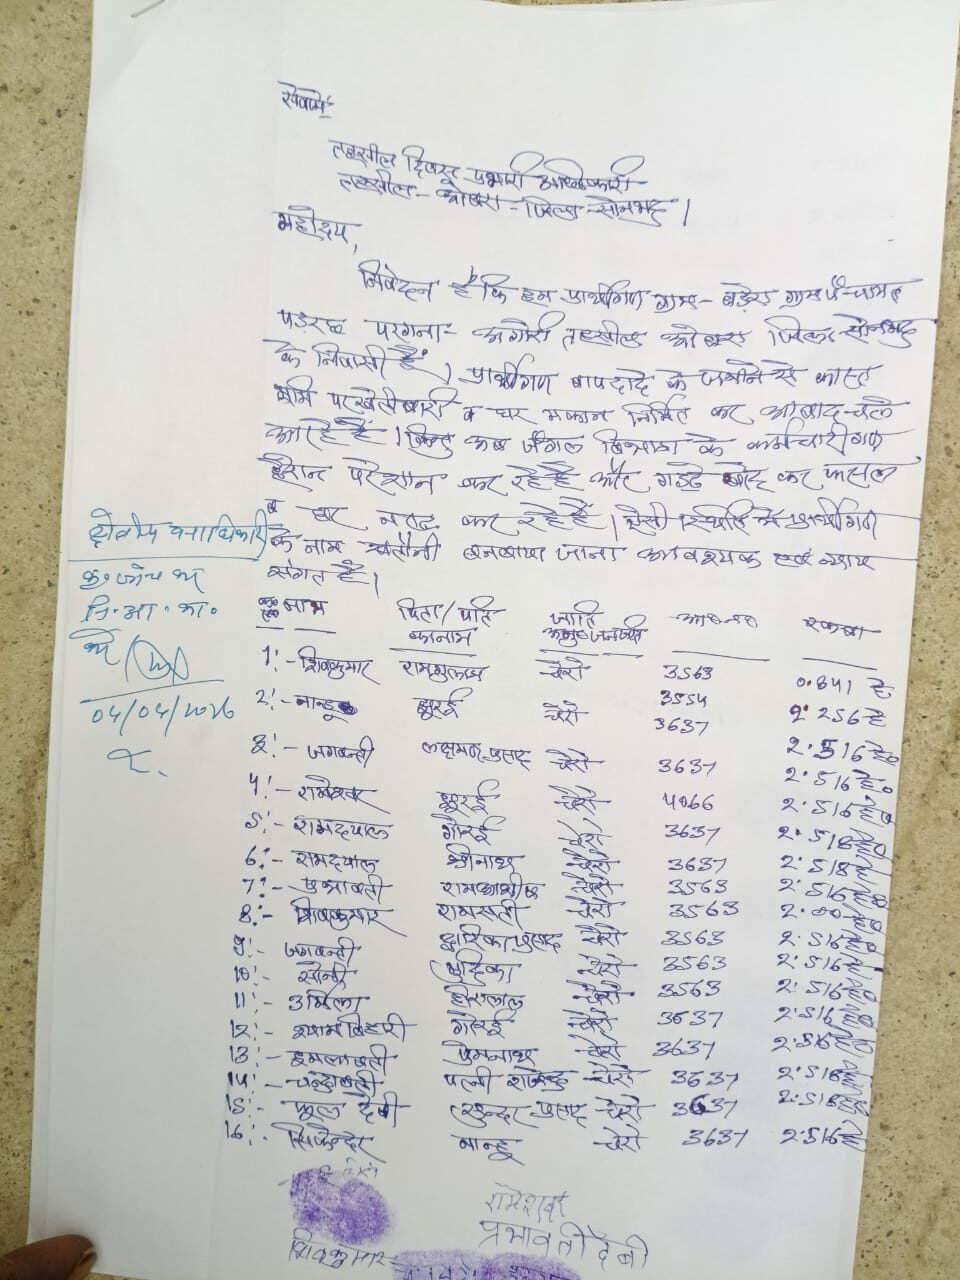 सेवामें
तहसील दिवस प्रभारी अधिकारी
तहसील - ओबरा - जिला - सोनभद्र।
महोदय,
निवेदन है कि हम प्रार्थीगण ग्राम - ग्राम पंचायत
परगना - अगोरी तहसील ओबरा जिला सोनभद्र
के निवासी हैं। प्रार्थीगण बापदादे के जमाने से कास्त
भूमि पर खेतीबारी व घर मकान निर्मित कर आबाद चले
आ रहे हैं। किन्तु अब जंगल विभाग के कर्मचारीगण
हैरान परेसान कर रहे हैं और गड्ढे खोद कर फसल
व घर नष्ट कर रहे हैं। ऐसी स्थिति में प्रार्थीगण
के नाम खतौनी बनवाया जाना आवश्यक एवं न्याय
संगत है।
क्षेत्रीय वनाधिकारी
कृ० जाँच कर
नि. आ. का.
करें
04/04/2026
क्र० सं० नाम पिता/पति का नाम जाति अनु० जनजाति आ०न० रकबा
1:- शिवकुमार चेरो 3563 0.841 हे०
2:- नान्हू झुरई चेरो 3554 3637 2.256 हे
3:- जगवन्ती लक्षमन प्रसाद चेरो 3637 2.516 हे०
4:- रामेश्वर झुरई चेरो 4066 2.516 हे०
5:- रामदयाल गोरई चेरो 3637 2.518 हे०
6:- रामदयाल श्रीनाथ चेरो 3637 2.518 हे
7:- प्रभावती चेरो 3563 2.516 हे०
8:- शिवकुमार रामसती चेरो 3563
9:- जगवन्ती द्वारिका प्रसाद चेरो 3563 2.516 हे०
10:- सोनी चेरो 3563 2.516 हे
11:- उर्मिला हीरालाल चेरो 3563 2.516 हे०
12:- श्यामबिहारी गोरई चेरो 3637 2.516 हे०
13:- इमलावती प्रेमनाथ चेरो 3637 2.516 हे०
14:- चन्द्रावती पत्नी राजेन्द्र चेरो 3637 2.518 हे०
15:- फूल देवी सुन्दर प्रसाद चेरो 3637 2.518 हे०
16:- नान्हू चेरो 3637 2.516 हे
रामेश्वर
प्रभावती देवी
शिवकुमार